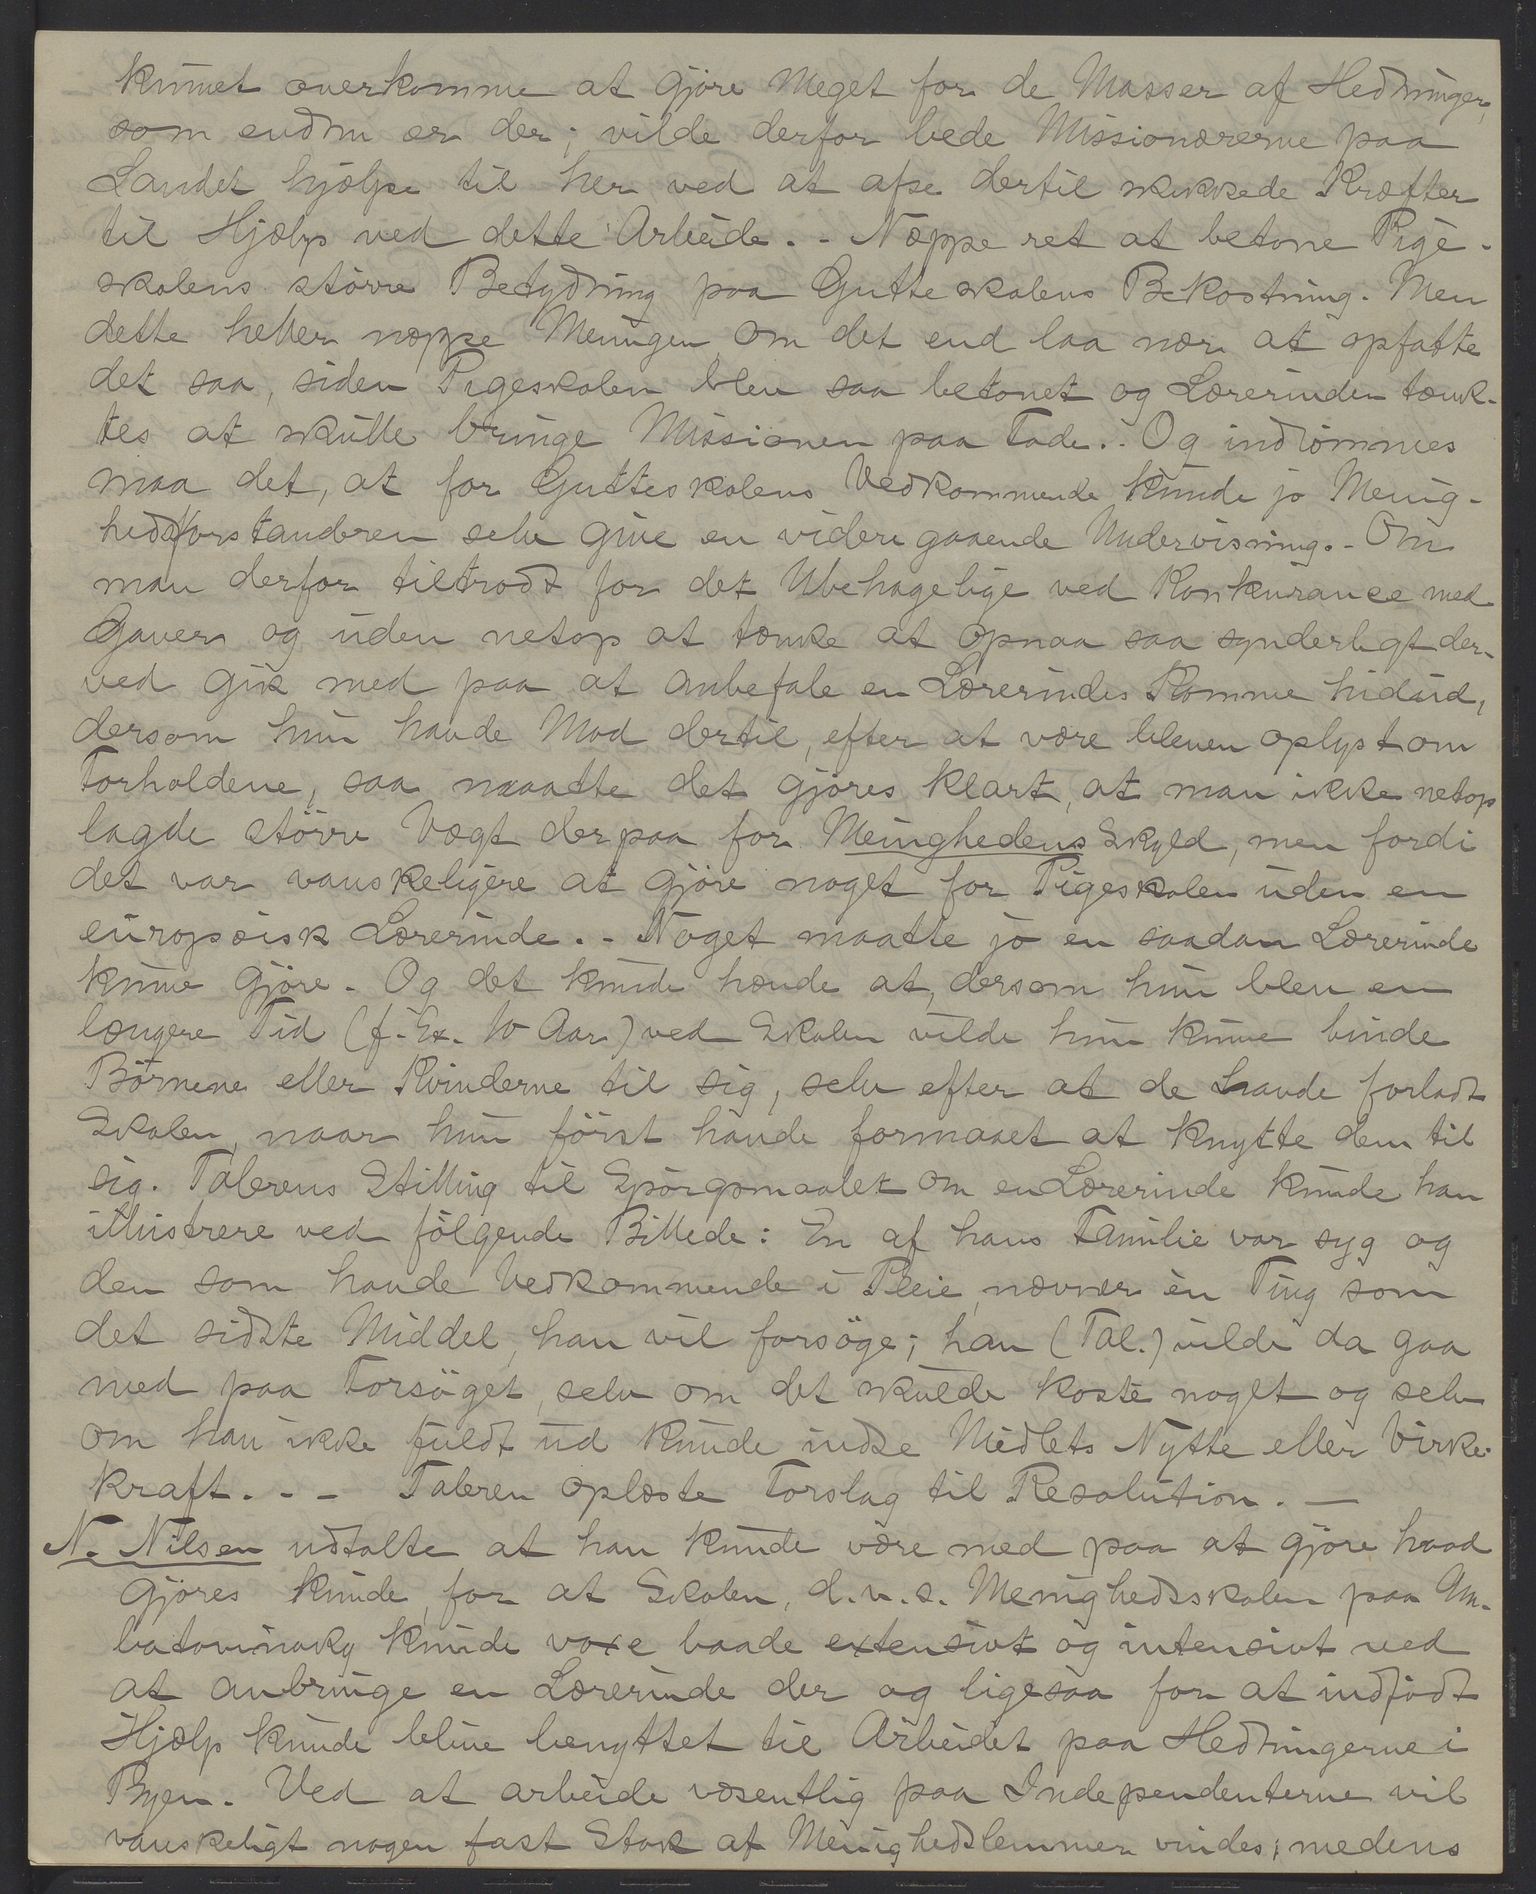 kunnet overkomme at gjöre meget for de Masser af Hedninger,
som endnu er der; vilde derfor bede Missionærerne paa
Landet hjælpe til her ved at afse dertil skikkede Kræfter
til Hjælp ved dette Arbeide. - Næppe ret at betone Pige-
skolens större Betydning paa Gutteskolens Bekostning. Men
dette heller næppe Meningen om det end laa nær at opfatte
det saa, siden Pigeskolen blev saa betonet og Lærerinden tænk-
tes at skulle bringe Missionen paa Fode. - Og indrömmes
maa det, at for Gutteskolens Vedkommende kunde jo Menig-
hedsforstanderen selv give en videregaaende Undervisning. - Om
man derfor tiltrods for det Ubehagelige ved Konkurance med
Gaver og uden netop at tænke at opnaa saa synderligt der-
ved gik med paa at anbefale en Lærerindes Komme hidud,
dersom hun havde Mod dertil, efter at være bleven oplyst om
Forholdene, saa maatte det gjöres klart, at man ikke netop
lagde större Vægt derpaa for Menighedens Skyld, men fordi
det var vanskeligere at gjöre noget for Pigeskolen uden en
europæisk Lærerinde. - Noget maatte jo en saadan Lærerinde
kunne gjöre. Og det kunde hænde at, dersom hun blev en
længere Tid (f. Ex. 10 Aar) ved Skolen vilde hun kunne binde
Börnene eller Kvinderne til sig, selv efter at de havde forladt
Skolen, naar hun först havde formaaet at knytte dem til
sig. Talerens Stilling til Spörgsmaalet om en Lærerinde kunde han
illustrere ved fölgende Billede: En af hans Familie var syg og
den som havde Vedkommende i Pleie, nævner èn Ting som
det sidste Middel, han vil forsöge; han (Tal.) vilde da gaa
med paa Forsöget, selv om det skulde koste noget og selv
om han ikke fuldt ud kunde indse Midlets Nytte eller Virke-
kraft. - - Taleren oplæste Forslag til Resolution. —
N. Nilsen udtalte at han kunde være med paa at gjöre hvad
gjöres kunde, for at Skolen, d.v.s. Menighedsskolen paa Am-
batovinaky kunde voxe baade extensivt og intensivt ved
at anbringe en Lærerinde der og ligesaa for at indfödt
Hjælp kunde blive benyttet til Arbeidet paa Hedningerne i
Byen. Ved at arbeide væsentlig paa Independenterne vil
vanskeligt nogen fast Stok af Menighedslemmer vindes; medens